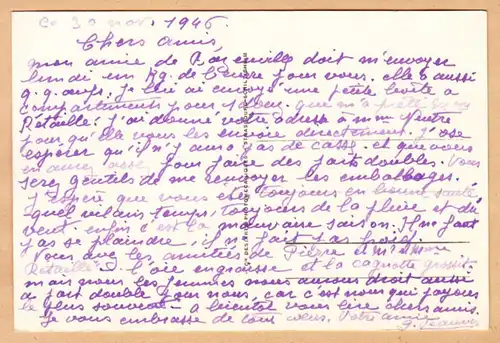 Ce 30 nov. 1946
Chers amis,
mon amie de doit m'envoyer
lundi un Kg. de beurre pour vous. elle a aussi
q.q. œufs. Je lui ai envoyé une petite boîte à
compartiments pour 12 que m'a prêté
Retaille: J'ai donné votre adresse à mme
pour qu'elle vous les envoie directement. J'ose
espérer qu'il n'y aura pas de casse. et que vous
en aurez assez pour faire des parts doubles. Vous
serez gentils de me renvoyer les emballages.
J'espère que vous êtes toujours en bonne santé
quel vilain temps, toujours de la pluie et du
vent. enfin c'est la mauvaise saison. Il ne faut
pas se plaindre, il ne fait pas froid.
Vous avez les amitiés de Pierre et
Retaille. L'oie engraisse et la cagnotte grossit.
mais nous les femmes nous aurons droit aussi
à part double pour nous, car c'est nous qui payons
le plus souvent. à bientôt vous lire chers amis.
Je vous embrasse de tous Votre amie